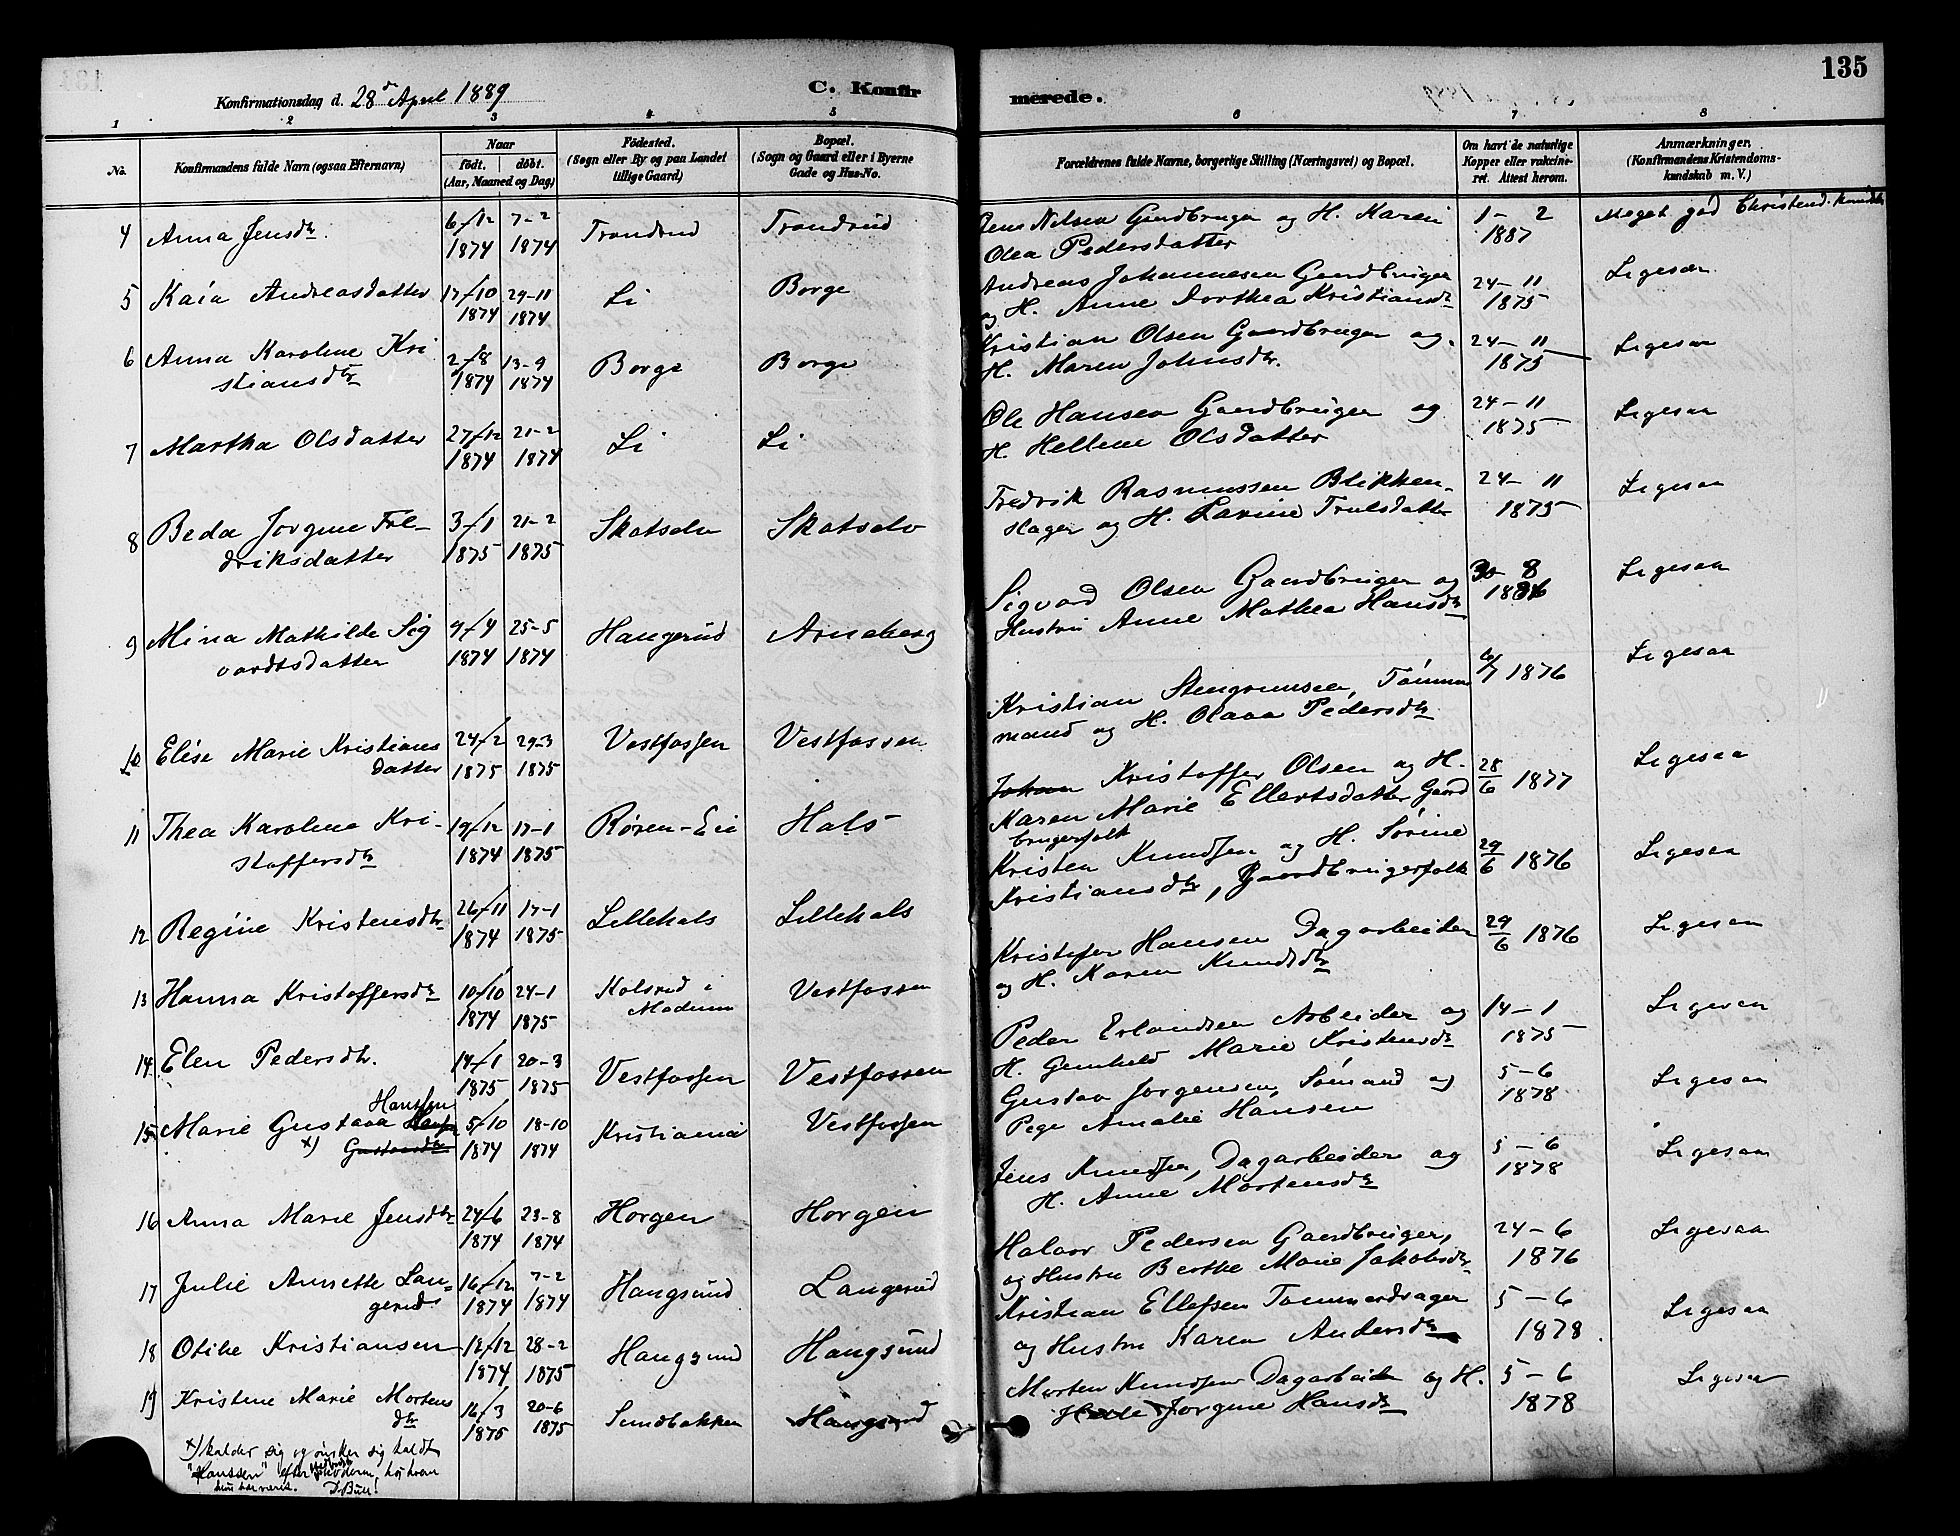 135
Konfirmationsdag d. 28d April 1889
C. Konfirmerede.
1 2 3 4 5 6 7 8
No.
Konfirmandens fulde Navn (ogsaa Efternavn)
Naar
födt. döbt.
(Aar, Maaned og Dag)
Födested.
(Sogn eller By og paa Landet
tillige Gaard)
Bopæl.
(Sogn og Gaard eller i Byerne
Gade og Hus-No.
Forældrenes fulde Navne, borgerlige Stilling (Næringsvei) og Bopæl.
Om havt de naturlige
Kopper eller vakcine-
ret. Attest herom.
Anmærkninger.
(Konfirmandens Kristendoms-
kundskab m. V.)
4 Anna Jensdtr. 6/12 1874 7-2 1874 Trondrud Trondrud
Jens Nilsen Gaardbruger og H. Karen
Olea Pedersdatter
1-2 1887 Meget god Christend. kundsk
5 Kaia Andreasdatter 17/10 1874 29-11 1874 Li Borge
Andreas Johannesen Gaardbruger
og H. Anne Dorthea Kristiansdtr
24-11 1875 Ligesaa
6 Anna Karoline Kri
stiansdtr 2/8 1874 13-9 1874 Borge Borge
Kristian Olsen Gaardbruger og
H. Maren Johnsdtr.
24-11 1875 Ligesaa
7 Martha Olsdatter 27/12 1874 21-2 1874 Li Li
Ole Hansen Gaardbruger og
H. Hellene Olsdatter
24-11 1875 Ligesaa
8 Beda Jorgine Fre-
driksdatter 3/1 1875 21-2 1875 Skotselv Skotselv
Fredrik Rasmussen Blikken-
slager og H. Lavine Trulsdatter
24-11 1875 Ligesaa
9 Mina Mathilde Sig
vardtsdatter 9/4 1874 25-5 1874 Haugerud Arneberg
Sigvard Olsen Gaardbruger og
Hustru Anne Mathea Hansdtr
30-8 Ligesaa
10 Elise Marie Kristians
datter 24/2 1875 29-3 1875 Vestfossen Vestfossen
Kristian Stengrimsen, Tømmer
mand og H. Olava Pedersdtr
6/7 1876 Ligesaa
11 Thea Karoline Kri-
stoffersdtr 19/12 1874 17-1 1875 Røren-Eie Hals
Johan Kristoffer Olsen og H.
Karen Marie Ellertsdatter Gaard
brugerfolk
28/6 1877 Ligesaa
12 Regine Kristensdtr 26/11 1874 17-1 1875 Lillehals Lillehals
Kristen Knudsen og H. Sørine
Kristiansdtr, Gaardbrugerfolk
29/6 1876 Ligesaa
13 Hanna Kristoffersdtr 10/10 1874 24-1 1875 Kolsrud i
Modum Vestfossen
Kristofer Hansen Dagarbeider
og H. Karen Knudsdtr
29/6 1876 Ligesaa
14. Elen Pedersdtr. 14/1 1875 20-3 1875 Vestfossen Vestfossen
Peder Erlandsen Arbeider og
H. Gunhild Marie Kristensdtr
14-1 1875 Ligesaa
15 Marie Gustava Hanssen
x) Gustavsdtr 5/10 1874 18-10 1874 Kristiania Vestfossen
Gustav Jorgensen, Sømand og
Pige Amalie Hansen
5-6 1878 Ligesaa
16 Anna Marie Jensdtr 24/6 1874 23-8 1874 Horgen Horgen
Jens Knudsen, Dagarbeider og
H. Anne Mortensdtr
5-6 1878 Ligesaa
17 Julie Annette Lan-
gerud 16/12 1874 7-2 1874 Haugsund Langerud
Halvor Pedersen Gaardbruger,
og Hustru Berthe Marie Jakobsdtr
24-6 1876 Ligesaa
18 Otilie Kristiansen 12/12 1874 28-2 1875 Haugsund Haugsund
Kristian Ellefsen Tømmerdrager
og Hustru Karen Andersdtr
5-6 1878. Ligesaa
19 Kristine Marie Mortens
dtr 16/3 1875 20-6 1875 Sundbakken Haugsund
Morten Knudsen Dagarbeider og H.
Jorgine Hansdtr
5-6 1878 Ligesaa
x) kalder sig og ønsker sig kaldt
"Hanssen" efter Moderen, hos hvem
hun har været. D. Bull.